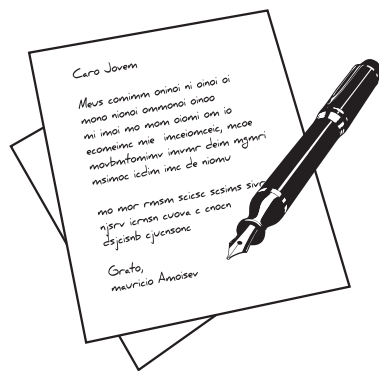 Caro Jovem
Meus comimm oninoi ni oinoi oi
mono nionoi ommonoi oinoo
mi imoi mo mom oiomi om io
econeimc mie imceiomceic, mcoe
moubmtomimv imvmr deim mgmri
msimoc icdim imc de niomu
mo mor rmsm scicsc scsims
njsrv icrnsn cuova c cnocn
dsjcisnb cjucnsonc
Grato,
mauricio Amoisev